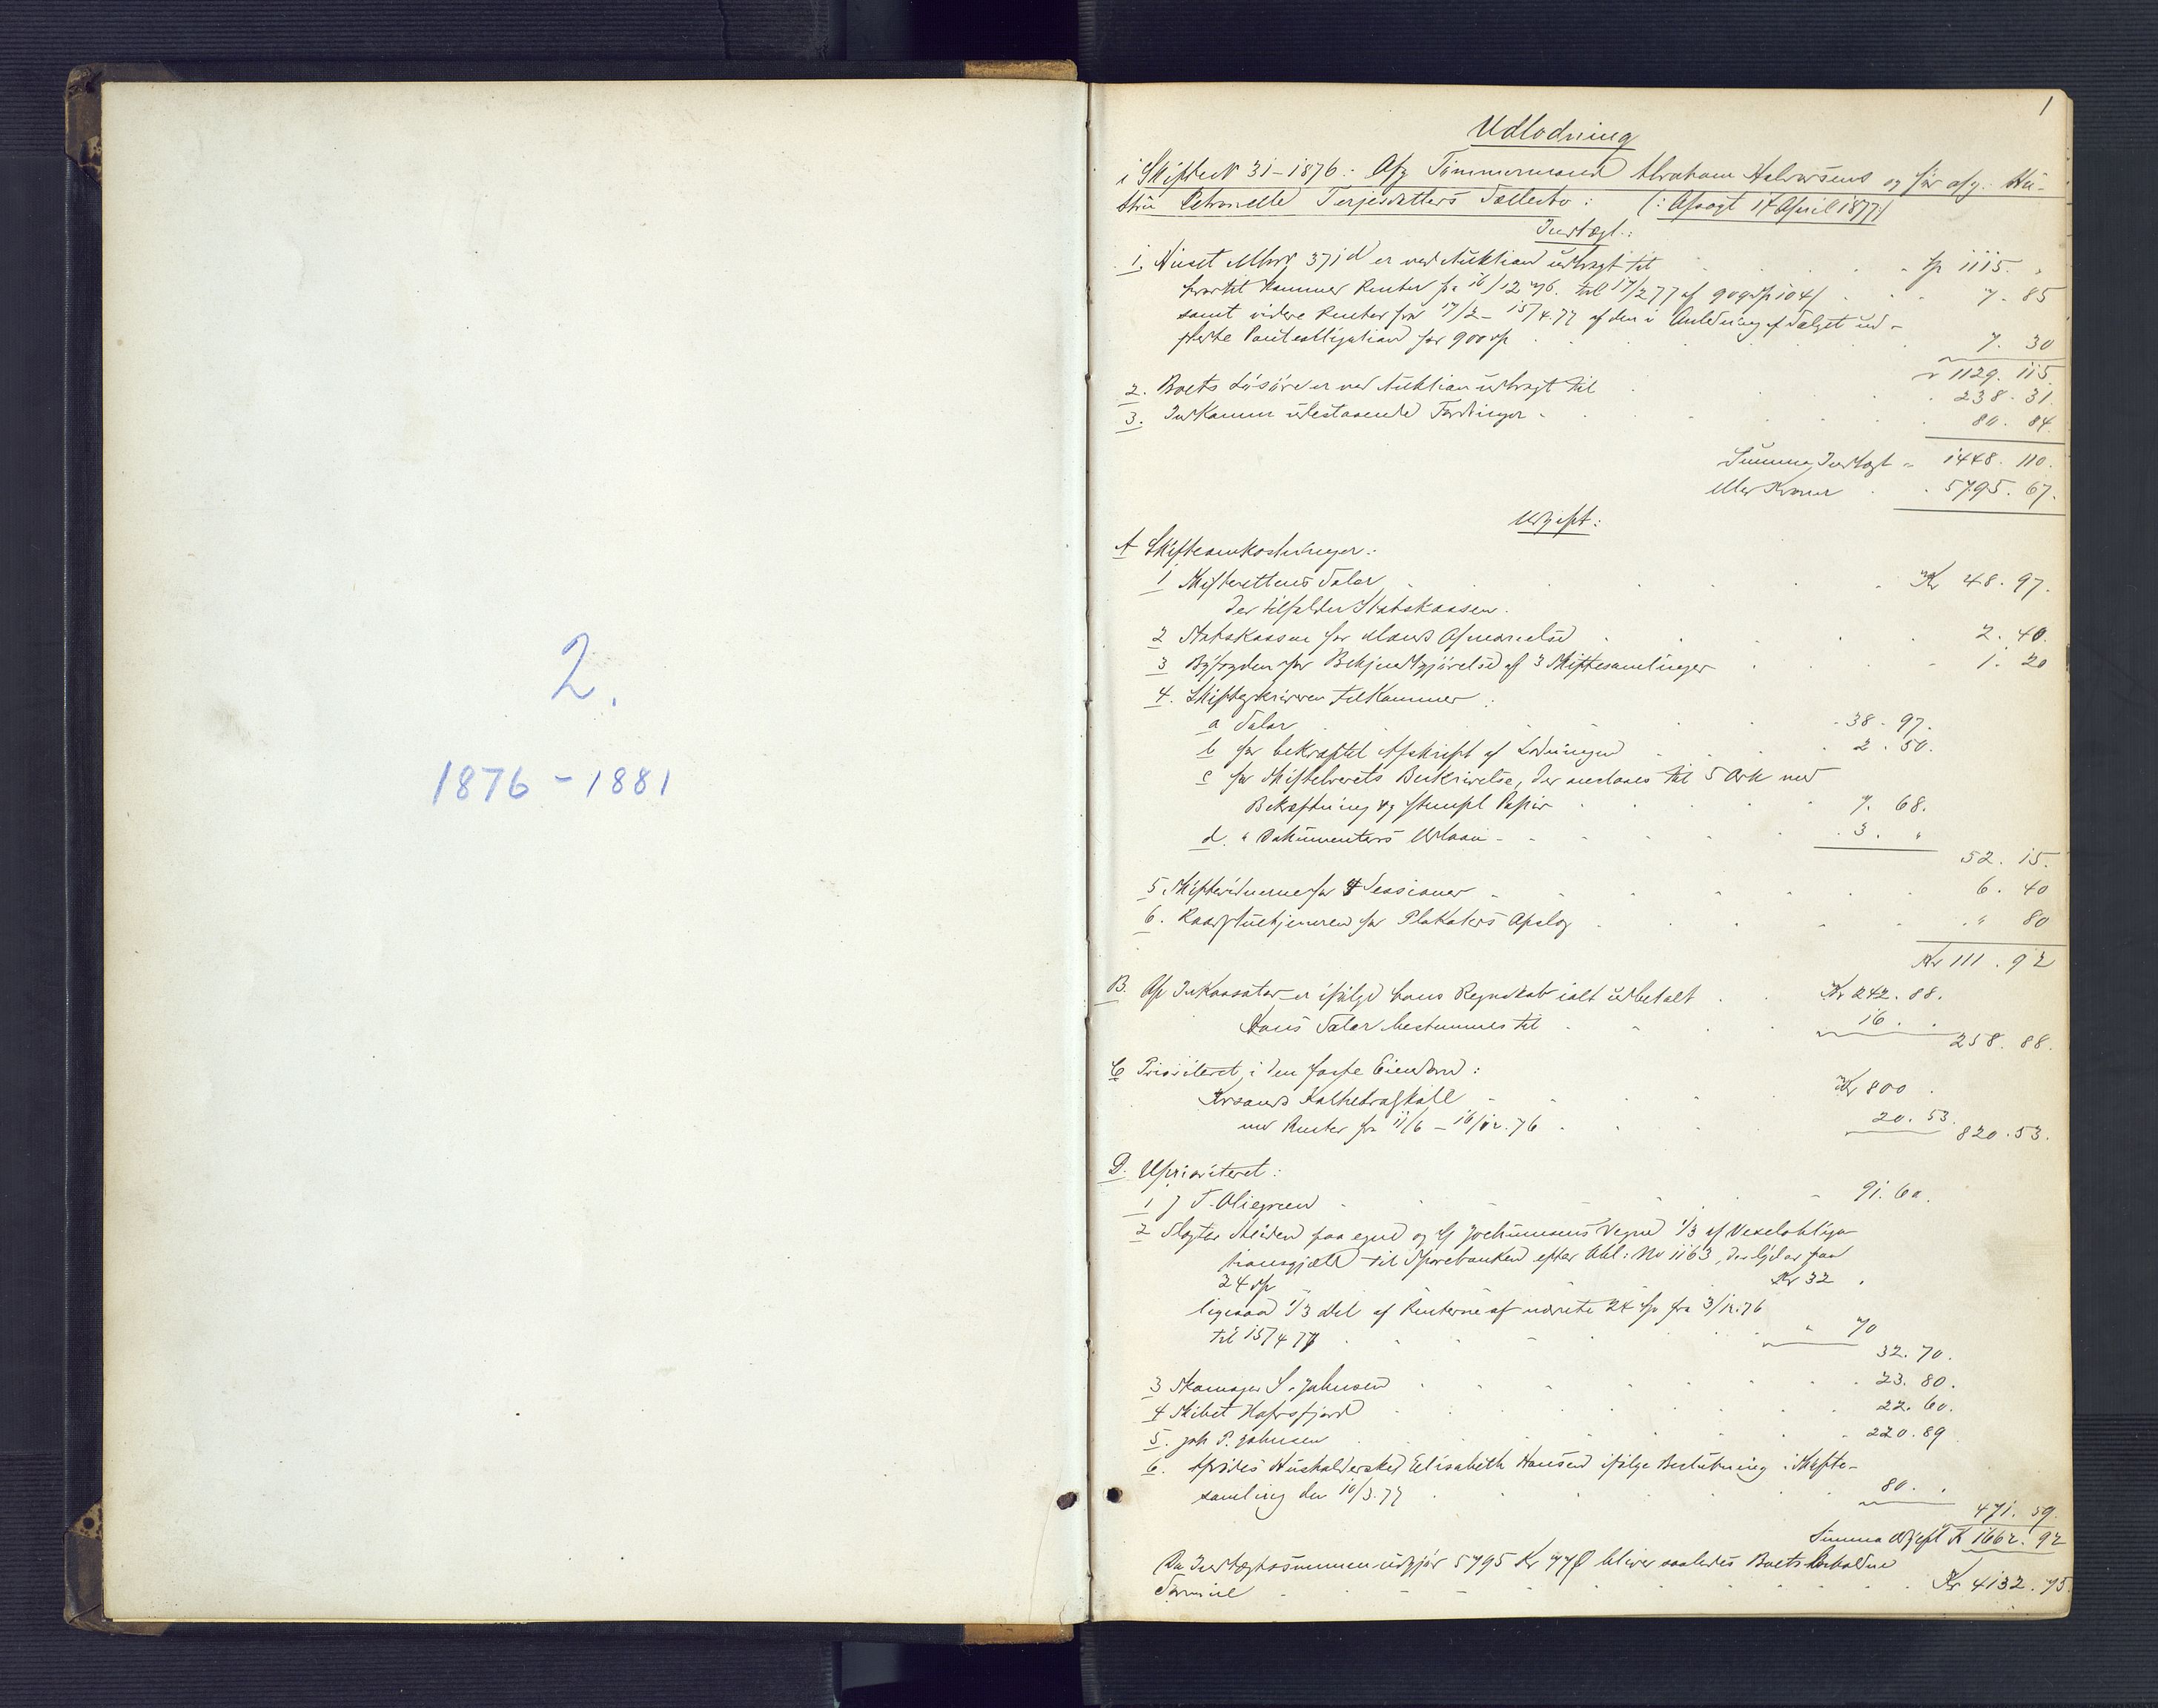 2.
1876 - 1881
1
Udlodning
i Skifte N 31-1876: Afg Tømmermand Abraham Halvorsens og før afg. Hu-
stru Petronelle Terjesdatters Fællesbo: (: Afsagt 17 April 1877:)
Indtægt:
1. Huset Matr 371 d er ved Auktion udbragt til Sp 1115. "
hvortil kommer Renter fra 16/12 76. til 17/2 77 af 909 Sp 104 7. 85
samt videre Renter fra 17/2 - 15/4.77 af den i Anledning af Salget ud-
stedte Pantobligation for 900 Sp 7. 30
1129. 115
2. Boets Løsøre er ved Auktion udbragt til 238. 31.
3. Indkomne udestaaende Fordringer 80. 84.
Summa Indtægt 1448. 110.
eller Kroner 5795. 67.
Udgift:
A Skifteomkostninger:
1 Skifterettens Salar Kr 48. 97.
der tilfalder Statskassen.
2 Statskassen for Afmarielse 2. 40.
3 Byfogden for Bekjendtgjørelse af 3 Skiftesamlinger 1. 20
4. Skifteskriveren tilkommer:
a Salar 38. 97.
b for bekræftet Afskrift af Lodningen 2. 50.
c for Skiftebrevets Beskrivelse, der ansaaes til 5 Ark med
Bekræftning og stempl. Papir 7. 68.
d. " Dokumenters Udlaan 3. "
52. 15.
5. Skiftevidnerne for 4 Sessioner 6. 40
6. Raadstuetjeneren for Plakaters Opslag " 80
Kr 111. 92
B. Af Inkassator er ifølge hans Regnskab ialt udbetalt Kr 242. 88.
Hans Salar bestemmes til 16. .
258. 88.
C Prioriteret i den faste Eiendom:
Krsands Kathedralskole Kr 800 .
med Renter fra 11/6 - 16/12.76 20. 53. 820. 53.
D. Uprioriteret:
1 J T. Oliegreen 91. 60.
2 Slagter Heiden paa egne og Jochumsens Vegne 1/3 af Vexelobliga-
tionsgjæld til Sparebanken efter Obl: No 1163, der lyder paa
24 Sp Kr 32 .
ligesaa 1/3 Del af Renterne af nævnte 24 Sp fra 3/12.76
til 15/4 77 " 70
32. 70.
3 Skomager S. Johnsen 23. 80.
4 Skibet Hafrsfjord 22. 60.
5. Joh P. Johnsen 220. 89
6. Afdødes Husholderske Elisabeth Hansen ifølge Beslutning i Skifte-
samling den 10/3.77 80. .
471. 59.
Summa Udgift Kr 1662. 92
Da Indtægtssummen udgjør 5795 Kr 67 Ø bliver saaledes Boets beholdne
Formue Kr 4132. 75